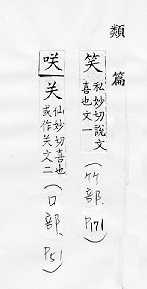 類篇
笑 私妙切說文喜也文一（竹部、P171）
咲 关 仙妙切喜也或作关文二（口部、P51）